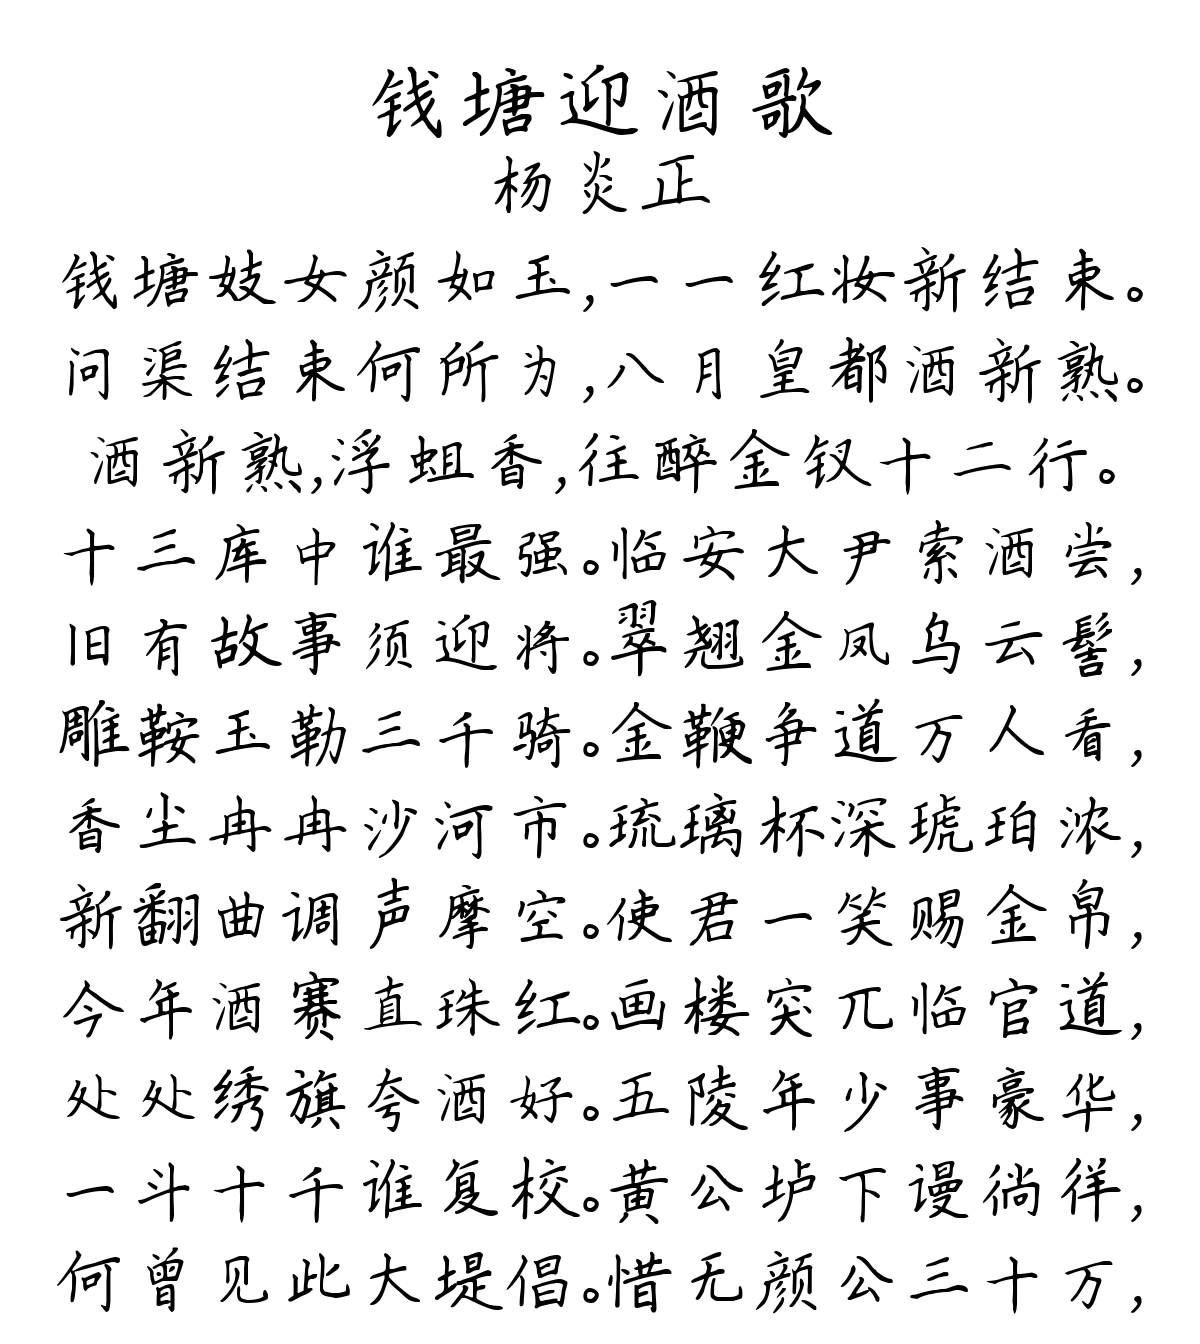 钱塘迎酒歌
杨炎正
钱塘妓女颜如玉,一一红妆新结束。
问渠结束何所为,八月皇都酒新熟。
酒新熟,浮蛆香,往醉金钗十二行。
十三库中谁最强。临安大尹索酒尝,
旧有故事须迎将。翠翘金凤乌云髻,
雕鞍玉勒三千骑。金鞭争道万人看,
香尘冉冉沙河市。琉璃杯深琥珀浓,
新翻曲调声摩空。使君一笑赐金帛,
今年酒赛直珠红。画楼突兀临官道,
处处绣旗夸酒好。五陵年少事豪华,
一斗十千谁复校。黄公垆下谩徜徉,
何曾见此大堤倡。惜无颜公三十万,